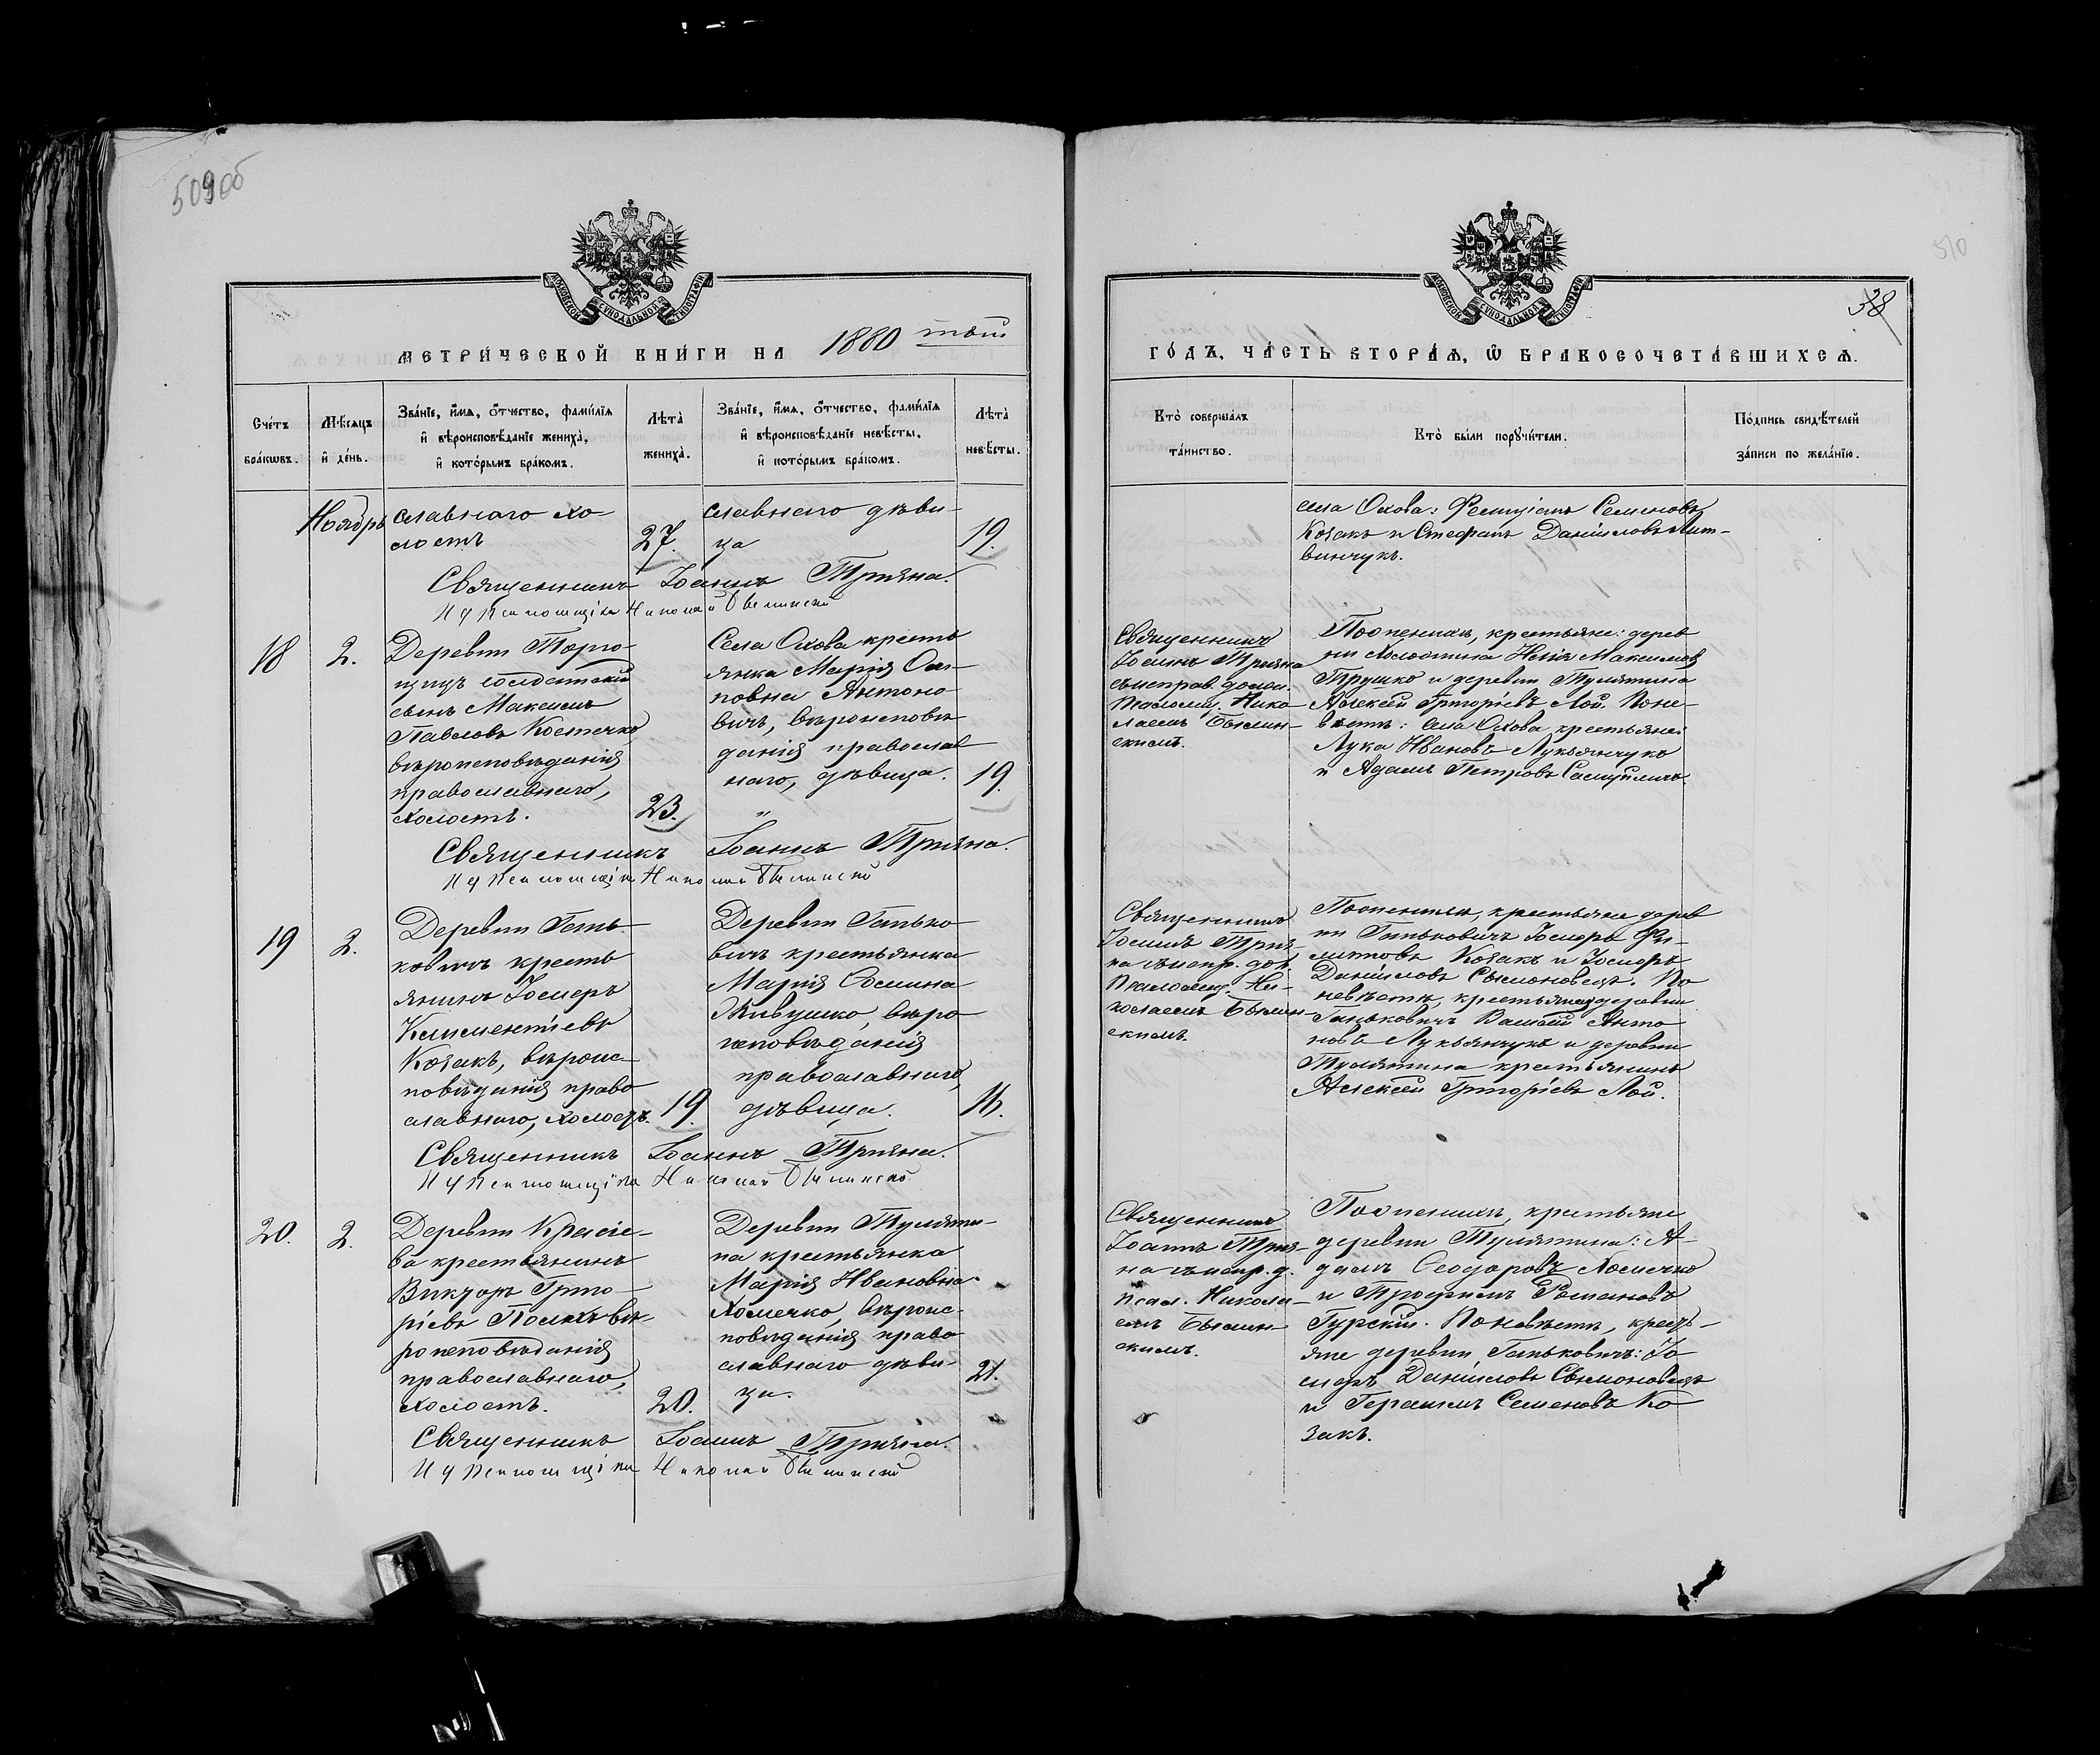 509об
МОСКОВСКОЙ СѴНОДАЛЬНОЙ ТИПОГРАФІИ
МЕТРИ́ЧЕСКОЙ КНИ́ГИ НА 1880 той
Сче́тъ бра́кѡвъ.
Мѣ́сяцъ и҆ де́нь.
Зва́нїе, и҆́мѧ, ѻ҆́тчество, фами́лїѧ
и҆ вѣроисповѣ́данїе жениха̀,
и҆ кото́рымъ бра́комъ.
Лѣта̀ жениха̀.
Зва́нїе, и҆́мѧ, ѻ҆́тчество, фами́лїѧ
и҆ вѣроисповѣ́данїе невѣ́сты,
и҆ кото́рымъ бра́комъ.
Лѣта̀ невѣ́сты.
Ноябрь
славнаго хо-
лостъ
27.
славнаго дѣви-
ца
19.
Священникъ Іоаннъ Трияна.
18
2.
Деревни Торго-
щицъ солдатскій
сынъ Максимъ
Павловъ Костечко
вѣроисповѣданія
православнаго,
холостъ.
23.
Села Охова кресть
янка Марія Оси-
повна Антоно-
вичъ, вѣроисповѣ
данія православ
наго, дѣвица.
19.
Священникъ Іоаннъ Трияна.
19
2.
Деревни Гень-
ковичъ кресть
янинъ Іосифъ
Климентіевъ
Козакъ, вѣроис-
повѣданія право
славнаго, холостъ.
19.
Деревни Генько
вичъ крестьянка
Марія Ѳомина
вѣро
исповѣданія
православнаго,
дѣвица.
16.
Священникъ Іоаннъ Трияна.
20.
2.
Деревни Красіе-
ва крестьянинъ
Викторъ Григо-
ріевъ Полихъ вѣ-
роисповѣданія
православнаго,
холостъ.
20.
Деревни Туляти-
на крестьянка
Марія Ивановна
Хомечко, вѣроис-
повѣданія право
славнаго дѣви-
ца.
21.
Священникъ Іоаннъ Трияна.
510
38
МОСКОВСКОЙ СѴНОДАЛЬНОЙ ТИПОГРАФІИ
ГО́ДЪ, ЧА́СТЬ ВТОРА́Ѧ, Ѡ҆ БРАКОСОЧЕТА́ВШИХСѦ.
Кто̀ соверша́лъ та́инство.
Кто̀ бы́ли порꙋчи́тели.
По́дпись свидѣ́телей
за́писи по жела́нїю.
села Охова: Семеновъ
Козакъ и Стефанъ Даниловъ Лит-
винчукъ.
Священникъ
Іоаннъ Трияна
съ исправ. долж.
Псаломщ. Нико-
лаемъ Бѣлин-
скимъ.
По женихѣ, крестьяне: дерев
ни Максимовъ
Трушко и деревни Тулятина
Алексѣй Григоріевъ Лой. По не-
вѣстѣ: села Охова крестьяне:
Лука Ивановъ Лукьянчукъ
и Адамъ Петровъ
Священникъ
Іоаннъ Трия-
на съ испр. дол.
Псаломщ. Ни-
колаемъ Бѣлин-
скимъ.
По женихѣ, крестьяне дерев
ни Геньковичъ Іосифъ Фи-
липповъ Козакъ и Іосифъ
Даниловъ По
невѣстѣ, крестьяне: деревни
Геньковичъ Василій Анто
новъ Лукьянчукъ и деревни
Тулятина крестьянинъ
Алексѣй Григоріевъ Лой.
Священникъ
Іоаннъ Трия-
на съ испр. д.
Псал. Никола-
емъ Бѣлин-
скимъ.
По женихѣ, крестьяне
деревни Тулятина: А-
дамъ Ѳеодоровъ Хомечко
и Трофимъ Романовъ
Гурскій. По невѣстѣ, кресть-
яне деревни Геньковичъ: Іо
сифъ Даниловъ
и Герасимъ Семеновъ Ко
закъ.